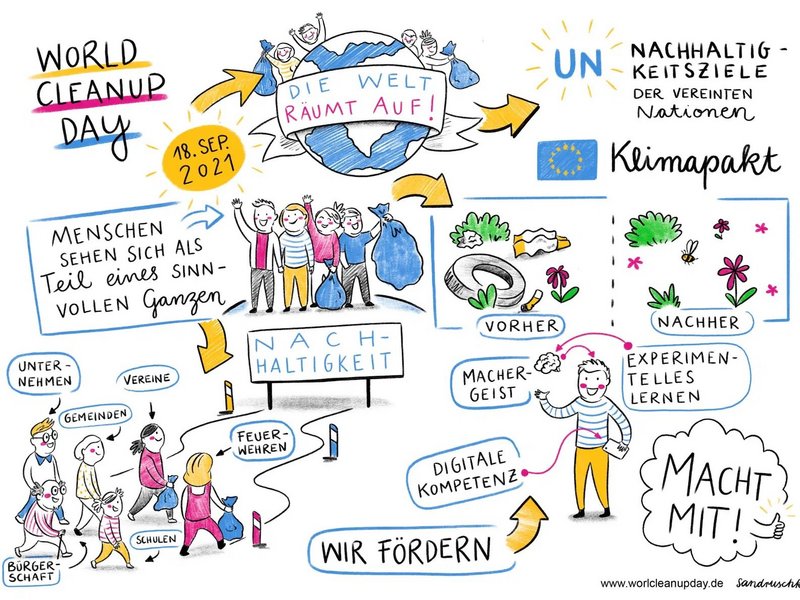 WORLD
CLEANUP
DAY
18. SEP.
2021
DIE WELT
RÄUMT AUF!
UN
NACHHALTIG-
KEITSZIELE
DER VEREINTEN
Nationen
Klimapakt
MENSCHEN
SEHEN SICH ALS
Teil eines SINN-
VOLLEN Ganzen
UN
VORHER
NACHHER
NACH-
HALTIGKEIT
UNTER-
NEHMEN
GEMEINDEN
VEREINE
FEUER-
WEHREN
SCHULEN
BÜRGER-
SCHAFT
MACHER-
GEIST
EXPERIMEN-
TELLES
LERNEN
DIGITALE
KOMPETENZ
WIR FÖRDERN
MACHT
MIT!
www.worlcleanupday.de